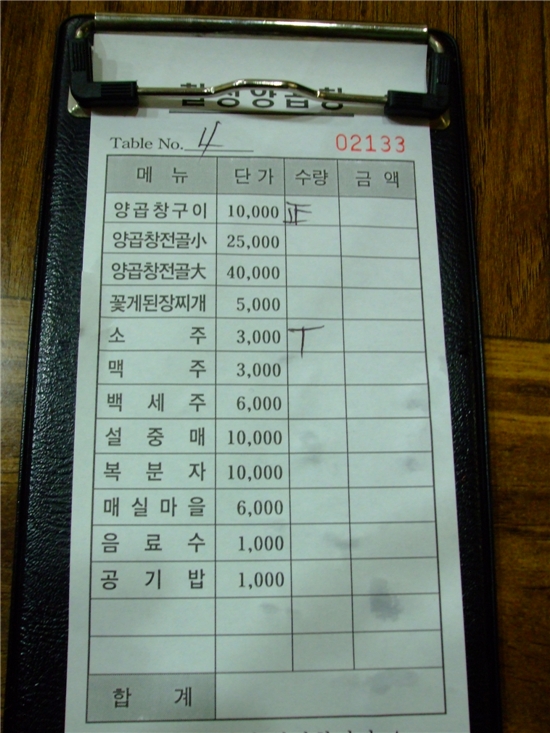 Table No. 4 02133
메뉴 단가 수량 금액
양곱창구이 10,000 正
양곱창전골小 25,000
양곱창전골大 40,000
꽃게된장찌개 5,000
소주 3,000 T
맥주 3,000
백세주 6,000
설중매 10,000
복분자 10,000
매실마을 6,000
음료수 1,000
공기밥 1,000
합계